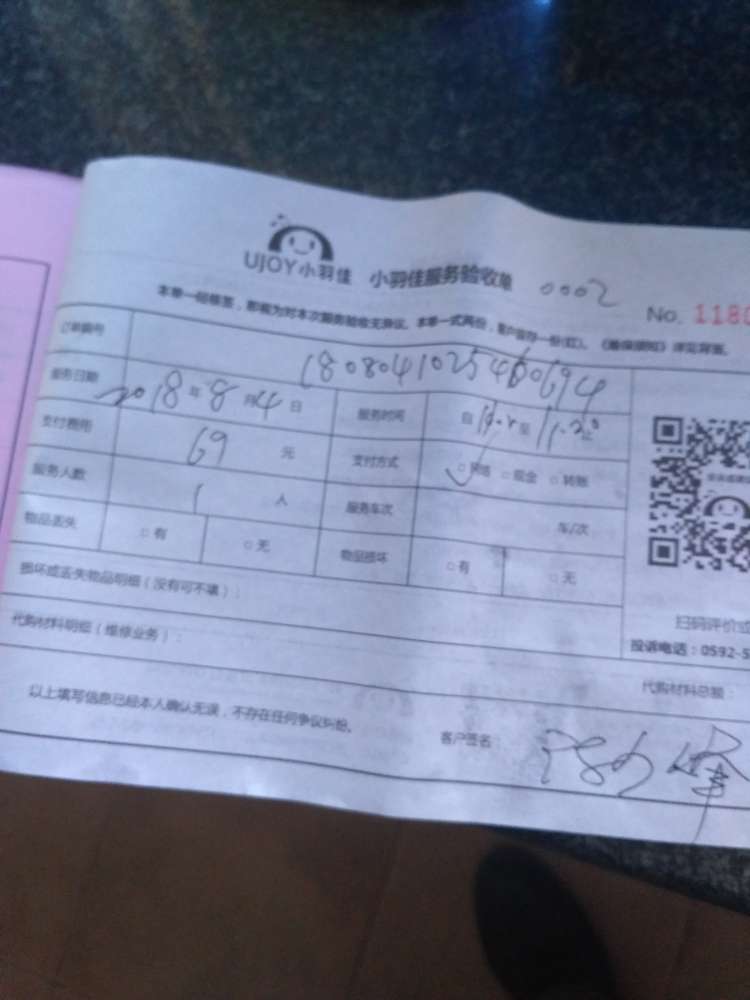 UJOY小羽佳 小羽佳服务验收单 0002
No. 1180
本单一经核签,即视为对本次服务验收无异议。本单一式两份,客户留存一份(红)。《维保须知》详见背面。
订单编号 1808041025460694
服务日期 2018年8月4日 服务时间 自 至 11.20止
支付费用 69 元 支付方式 □网络 □现金 □转账
服务人数 1 人 服务车次 车/次
物品丢失 □有 □无 物品损坏 □有 □无
损坏或丢失物品明细(没有可不填):
代购材料明细(维修业务):
扫码评价或
投诉电话:0592-5
代购材料总额:
以上填写信息已经本人确认无误,不存在任何争议纠纷。
客户签名: